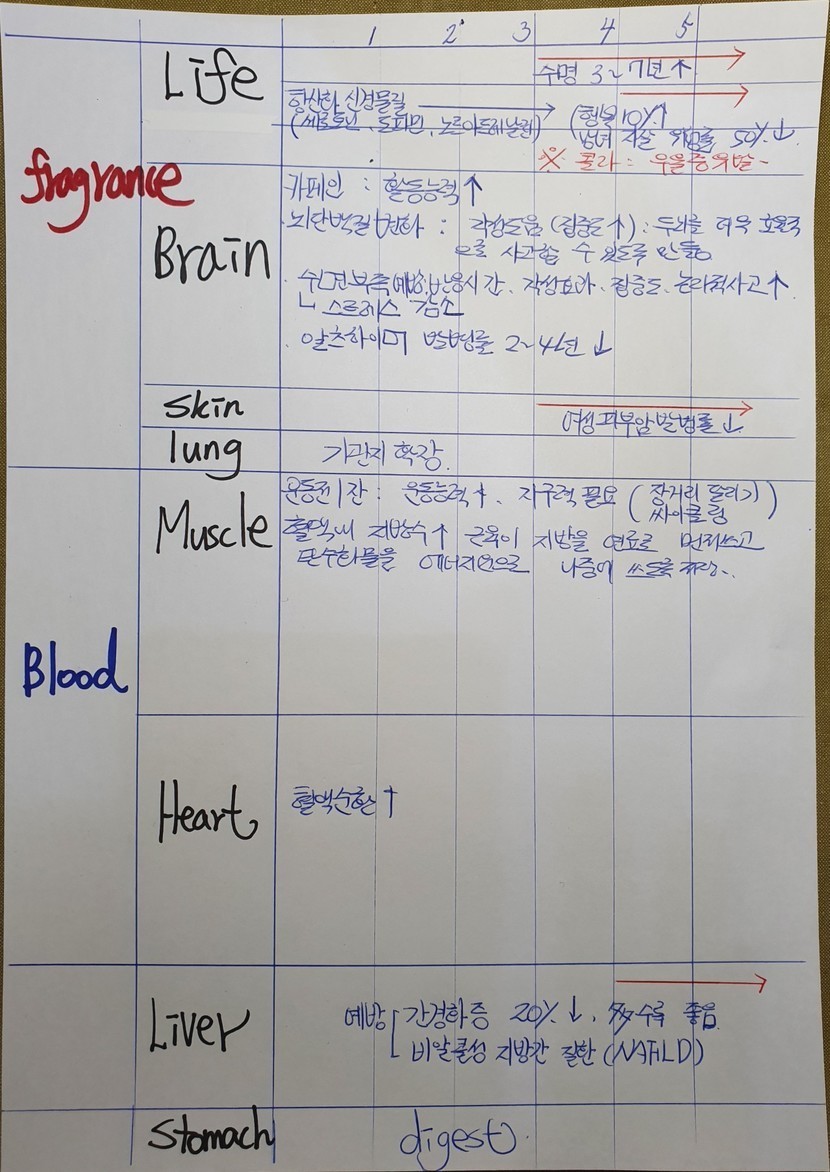 1 2 3 4 5
Life
수명 3~7년↑
항산화 신경물질 → (행복 10%↑
(세로토닌, 도파민, 노르아드레날린) 남녀 자살 위험률 50%↓
※ 콜라 : 우울증 유발
fragrance
Brain
카페인 : 활동능력↑
뇌단백질 변화 : 각성도움 (집중도↑) : 두뇌를 더욱 효율적
으로 사고할 수 있도록 만듦
수면부족예방, 반응시간, 각성효과, 집중도, 논리적사고↑
ㄴ 스트레스 감소
알츠하이머 발병률 2~4년↓
skin
여성피부암발병률↓
lung
기관지 확장.
Muscle
운동전 1잔 : 운동능력↑, 지구력 필요 (장거리 달리기
싸이클링)
혈액내 지방수↑ 근육이 지방을 연료로 먼저쓰고
탄수화물을 에너지원으로 나중에 쓰도록 저장~.
Blood
Heart
혈액순환↑
Liver
예방 간경화증 20%↓, 多수록 좋음
비알콜성 지방간 질환 (NAFLD)
Stomach
digest.